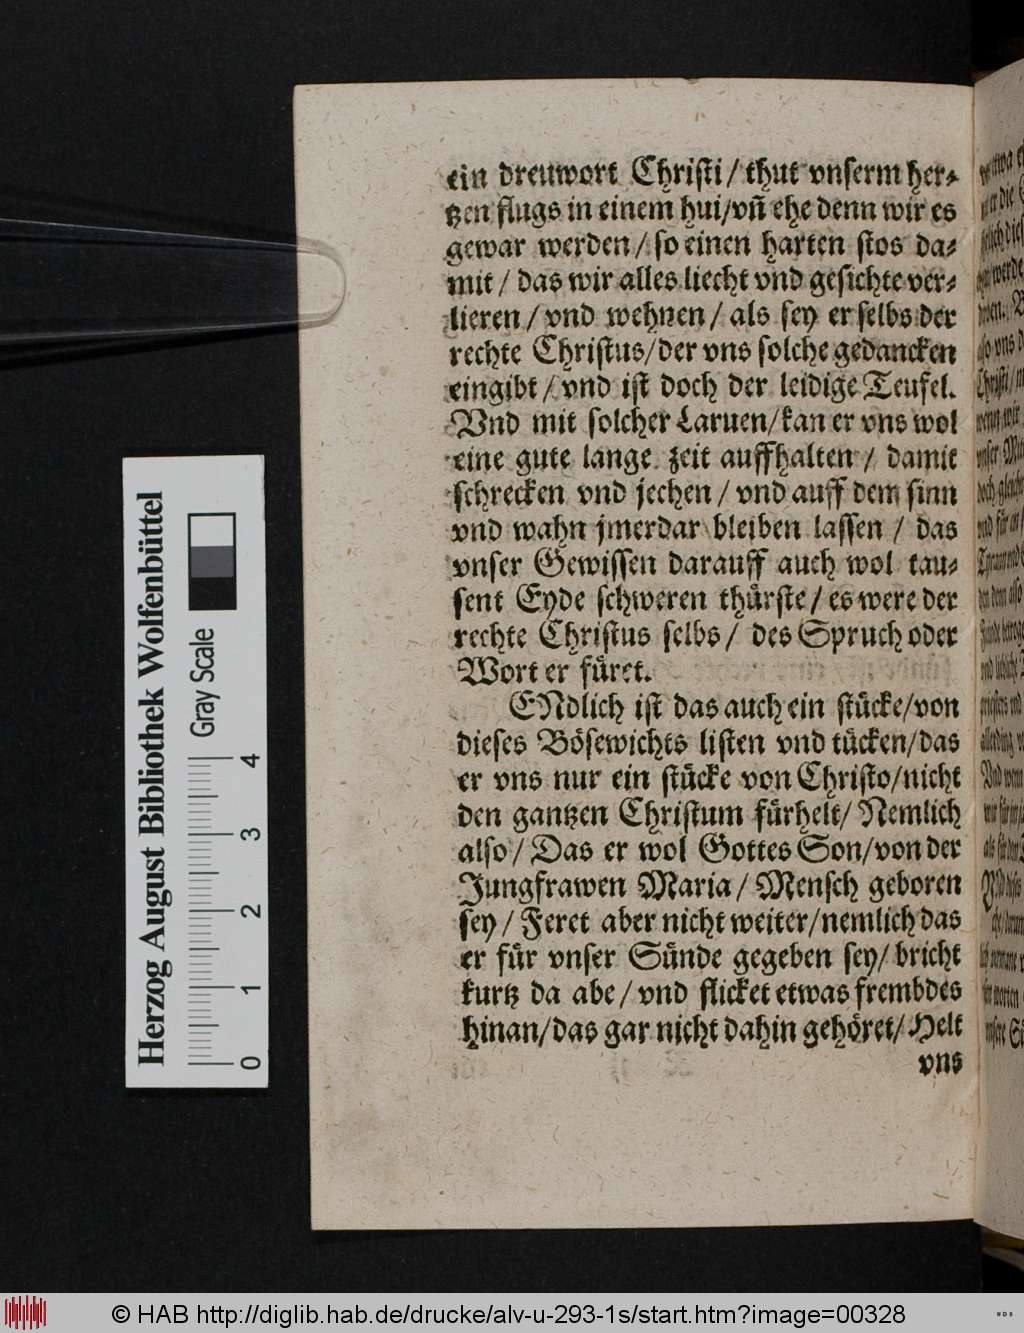 ein dreuwort Christi / thut vnserm her⸗
tzen flugs in einem hui/vñ ehe denn wir es
gewar werden / so einen harten stos da⸗
mit / das wir alles liecht vnd gesichte ver⸗
lieren / vnd wehnen / als sey er selbs der
rechte Christus/der vns solche gedancken
eingibt / vnd ist doch der leidige Teufel.
Vnd mit solcher Laruen/kan er vns wol
eine gute lange zeit auffhalten / damit
schrecken vnd jechen / vnd auff dem sinn
vnd wahn jmerdar bleiben lassen / das
vnser Gewissen darauff auch wol tau⸗
sent Eyde schweren thürste / es were der
rechte Christus selbs / des Spruch oder
Wort er füret.
ENdlich ist das auch ein stücke/von
dieses Bösewichts listen vnd tücken/das
er vns nur ein stücke von Christo/nicht
den gantzen Christum fürhelt/ Nemlich
also / Das er wol Gottes Son/von der
Jungfrawen Maria / Mensch geboren
sey / Feret aber nicht weiter/nemlich das
er für vnser Sünde gegeben sey/ bricht
kurtz da abe / vnd flicket etwas frembdes
hinan/das gar nicht dahin gehöret/ Helt
vns
Herzog August Bibliothek Wolfenbüttel
Gray Scale
0 1 2 3 4
© HAB http://diglib.hab.de/drucke/alv-u-293-1s/start.htm?image=00328